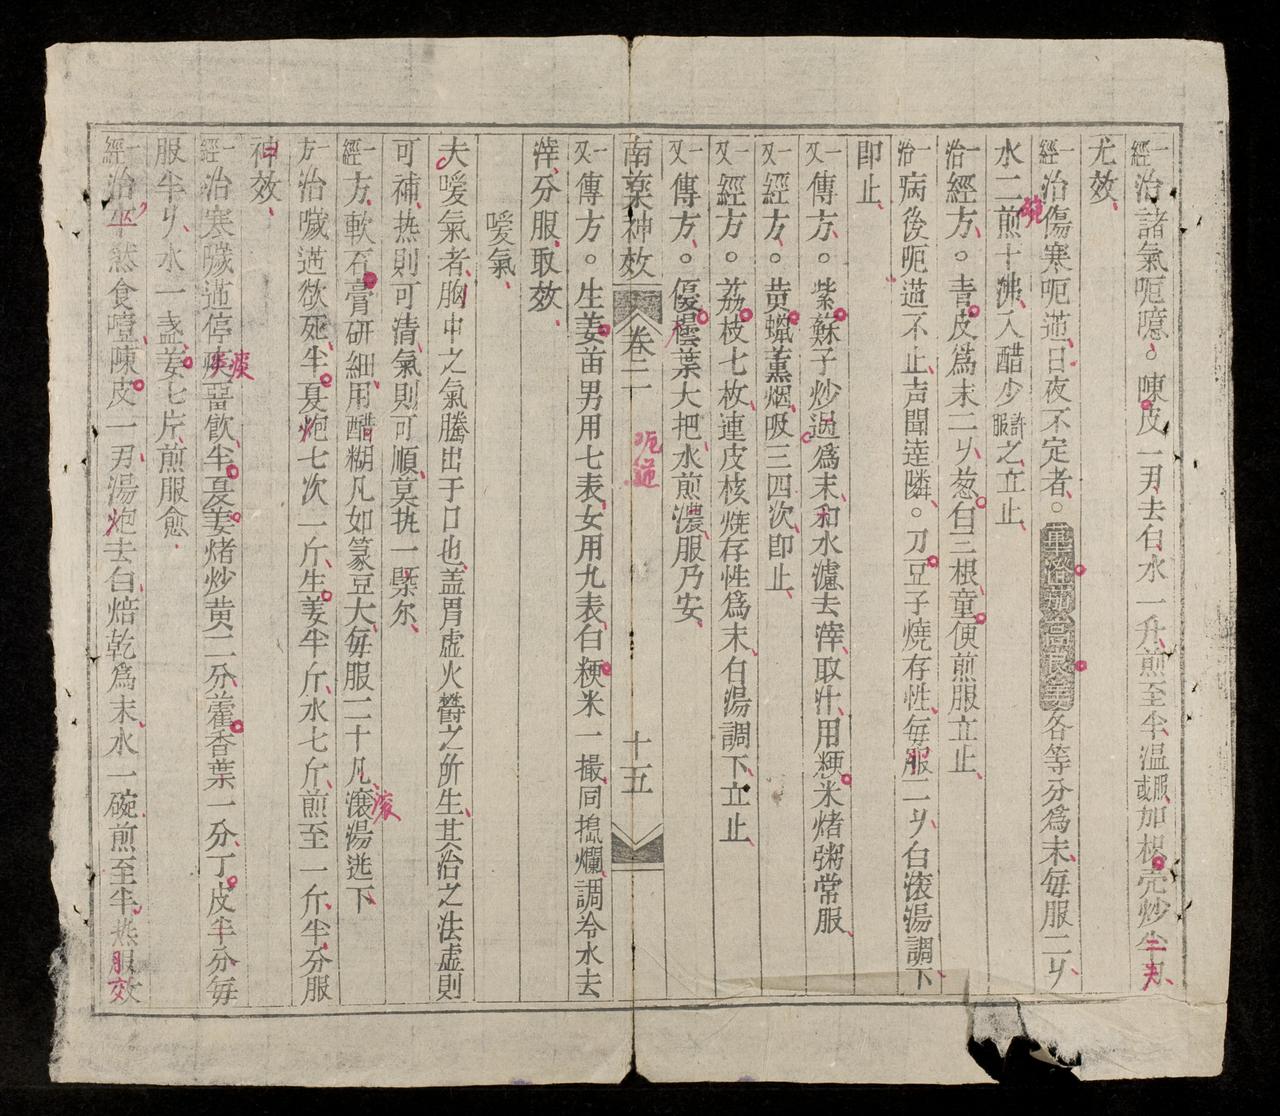 一經治諸氣呃噫。陳皮一刃去白水一升煎至半温服或加枳壳炒半
尤效
一經治傷寒呃逆日夜不定者。蓽澄茄高良姜各等分爲末每服二𠂆
水二碗煎十沸入醋少許服之立止
一治經方。青皮爲末二𠂆葱白三根童便煎服立止
一治病後呃逆不止声聞達隣。刀豆子燒存性每服二𠂆白滚湯調下
即止
一又傳方。紫蘇子炒過爲末和水濾去滓取汁用粳米煮粥常服
一又經方。黄蠟薰烟吸三四次即止
一又經方。荔枝七枚連皮核燒存性爲末白湯調下立止
一又傳方。優曇葉大把水煎濃服乃安
南藥神效 卷二 呃逆 十五
一又傳方。生姜苗男用七表女用九表白粳米一撮同搗爛調冷水去
滓分服取效
噯氣
夫噯氣者胸中之氣騰出于口也盖胃虚火欝之所生其治之法虚則
可補热則可清氣則可順莫执一槩尔
一經方軟石膏研細用醋糊凡如菉豆大每服二十凡滚湯送下
一方治噦逆欲死半夏炮七次一斤生姜半斤水七斤煎至一斤半分服
神效
一經治寒噦逆停痰畱飲半夏姜煮炒黄二分藿香葉一分丁皮半分每
服半𠂆水一盞姜七片煎服愈
一經治卒然食噎陳皮一刃湯炮去白焙乾爲末水一碗煎至半热服效